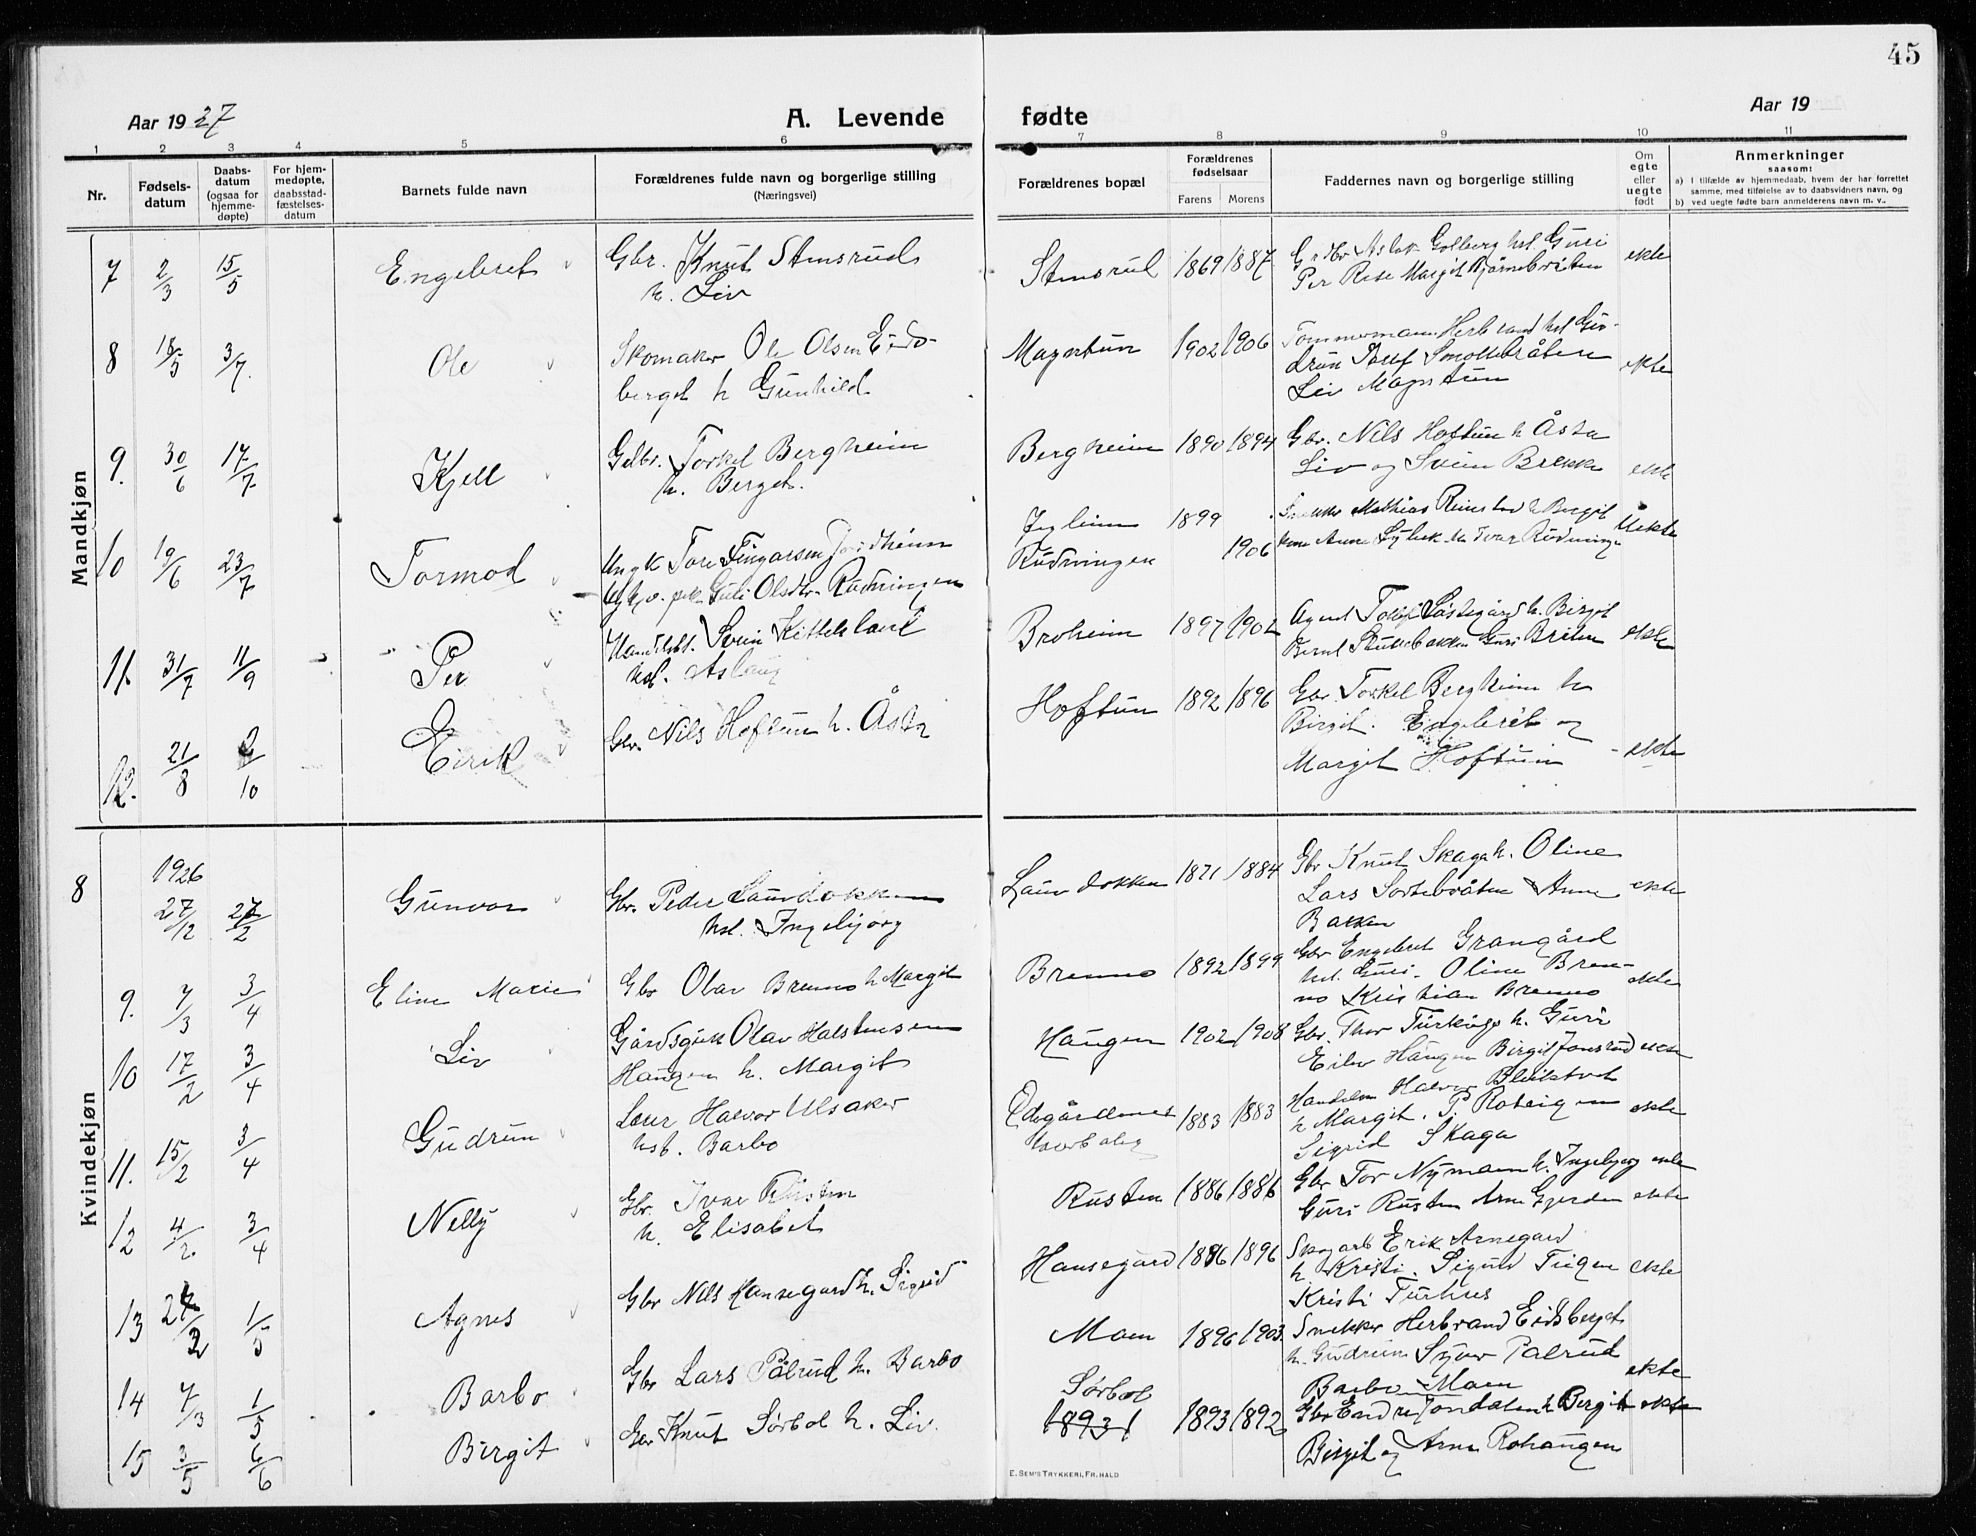 45
Aar 1927
A. Levende fødte
Aar 19
1 2 3 4 5 6 7 8 9 10 11
Nr.
Fødsels-
datum
Daabs-
datum
(ogsaa for
hjemme-
døpte)
For hjem-
medøpte,
daabsstad-
fæstelses-
datum
Barnets fulde navn
Forældrenes fulde navn og borgerlige stilling
(Næringsvei)
Forældrenes bopæl
Forældrenes
fødselsaar
Farens Morens
Faddernes navn og borgerlige stilling
Om
egte
eller
uegte
født
Anmerkninger
saasom:
a) I tilfælde av hjemmedaab, hvem der har forrettet
samme, med tilføielse av to daabsvidners navn, og
b) ved uegte fødte barn anmelderens navn m. v..
Mandkjøn
7 2/3 15/5 Engebret Gbr. Knut Stensrud
h. Liv
Stensrud 1869 1887 Aslak Golberg hst. Guri
Per Rese Margit Bjørnebråten
ekte
8 18/5 3/7. Ole Skomaker Ole Olsen Eids-
berget h Gunhild
Magertun 1902 1906 Tømmermann Herbrand hst Gu-
drun Smollebråten
Liv Magertun
ekte
9. 30/6 17/7 Kjell Gbr. Torkel Bergheim
h. Berget.
Bergheim 1890 1894 Gbr. Nils Hoftun h Åsta
Liv og Svein Brekke
ekte
10 19/6 23/7 Tormod Ungk Tore Fingarsen Jordheim
pike Guli Olsdtr. Rudningen
Rudningen
1899
1906
Mathias h Birgit
Anne Ivar Rudning
Uekte
11. 31/7 11/9 Per Handelsb. Svein Kittelsland
hst. Aslaug
Broheim 1897 1902 Agent h. Birgit
Guri Bråten
ekte
12. 21/8 2/10 Eirik Gbr. Nils Hoftun h. Åsta
Hoftun 1892 1896 Gbr Torkel Bergheim h
Birgit. Engebret og
Margit Hoftun
ekte
Kvindekjøn
8 1926
27/12 27/2 Gunvor Gbr. Peder Laurdokken
hst. Ingebjørg
Laurdokken 1871 1884 Gbr Knut Skaga h. Oline
Lars Sortebråten Anne
Bakken
ekte
9. 7/3 3/4 Eline Marie Gbr Olav Brenno h Margit
Brenno 1892 1899 Gbr Engebret Grangård
hst. Guri. Oline Bren-
no Kristian Brenno
ekte
10 17/2 3/4 Liv Gårdsgutt Olav Halstensen
Haugen h. Margit
Haugen 1902 1908 Gbr. Thor h. Guri
Eilev Haugen Birgit Jonsrud
ekte
11. 15/2 3/4 Gudrun Lærer Halvor Ulsaker
hst. Barbo
Ødegårdenes
1883 1883
Handelsm Halvor
h Margit. P.
Sigrid Skaga
ekte
12 4/2 3/4 Nelly Gbr. Ivar Rusten
h. Elisabet
Rusten 1886 1886 Gbr Tor Nymann h. Ingebjørg
Guri Rusten Arne Gjerden
ekte
ekte
13 24/2 1/5 Agnes Gbr Nils Hansegard h. Sigrid
Hansegard 1886 1896 Skogarb Erik Arnegard
h. Kristi. Sigurd
Kristi Turhus
ekte
14 7/3 1/5 Barbo Gbr Lars Pålrud h. Barbo
Moen 1896 1903 Snekker Herbrand Eidsberget
h. Gudrun Syver Palrud
Barbo Moen
ekte
15 3/5 6/6 Birgit Gbr Knut Sørbøl h. Liv.
Sørbøl
1893 1
1893 1892
Gbr Endre Jondalen h Birgit
Birgit og Arne Rohaugen
ekte
E. SEM'S TRYKKERI, FR.HALD